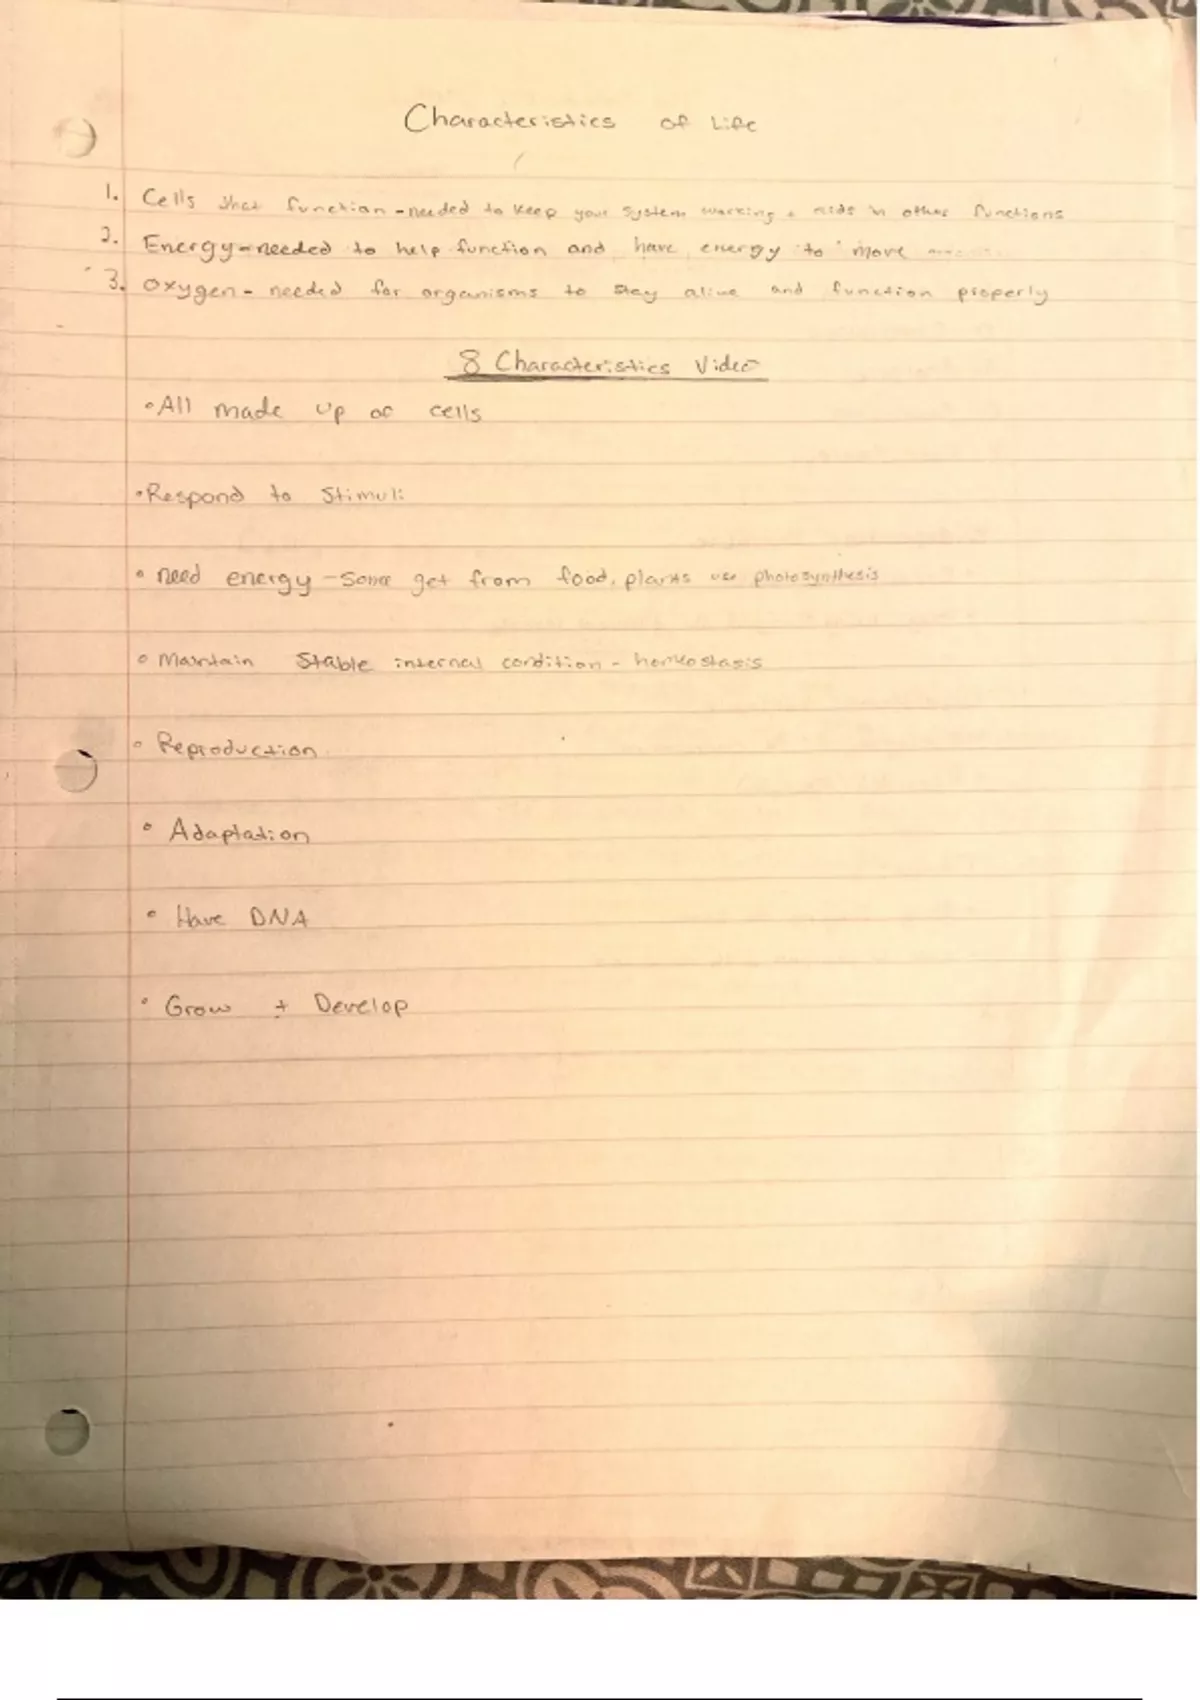 Characteristics of Life
1. Cells that function - needed to keep your system working + aids in other functions
2. Energy - needed to help function and have energy to move
3. Oxygen - needed for organisms to stay alive and function properly
8 Characteristics Video
• All made up of cells
• Respond to Stimuli
• need energy - some get from food, plants use photosynthesis
• Maintain Stable internal condition - homeostasis
• Reproduction
• Adaptation
• Have DNA
• Grow + Develop